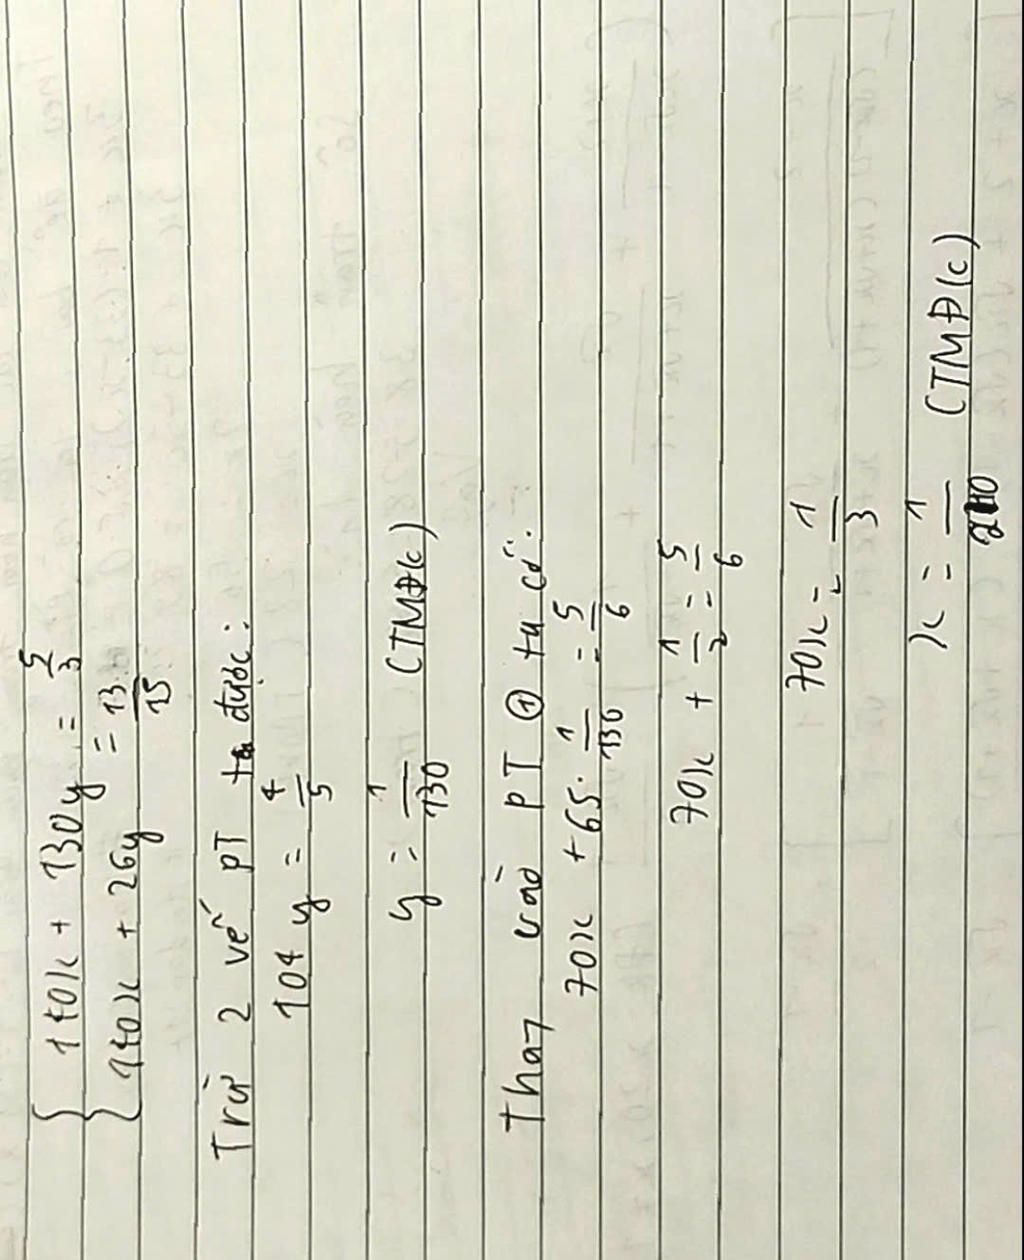 { 140x + 130y = 5/3
{ 140x + 26y = 13/15
Trừ 2 vế PT ta được:
104y = 4/5
y = 1/130 (TMĐK)
Thay vào PT ① ta có:
70x + 65. 1/130 = 5/6
70x + 1/2 = 5/6
70x = 1/3
x = 1/210 (TMĐK)